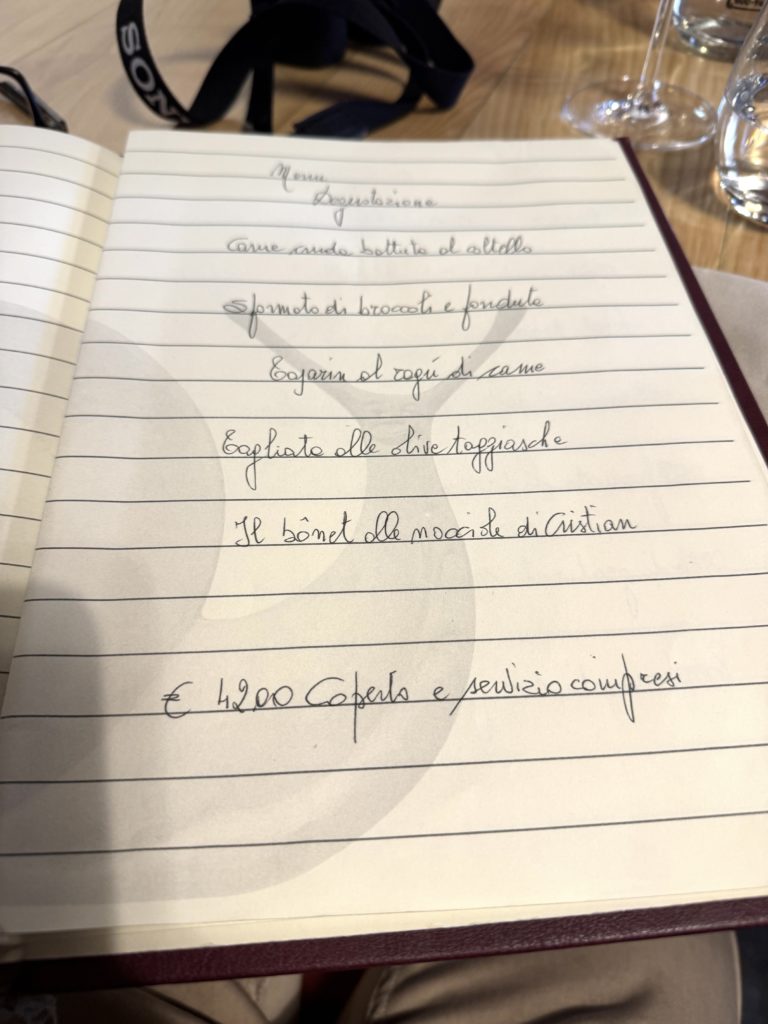 SONY
Menu
Degustazione
Carne cruda battuta al coltello
Sformato di broccoli e fonduta
Tajarin al ragú di carne
Tagliata alle olive taggiasche
Il bônet alle nocciole di Cristian
€ 42,00 Coperto e servizio compresi